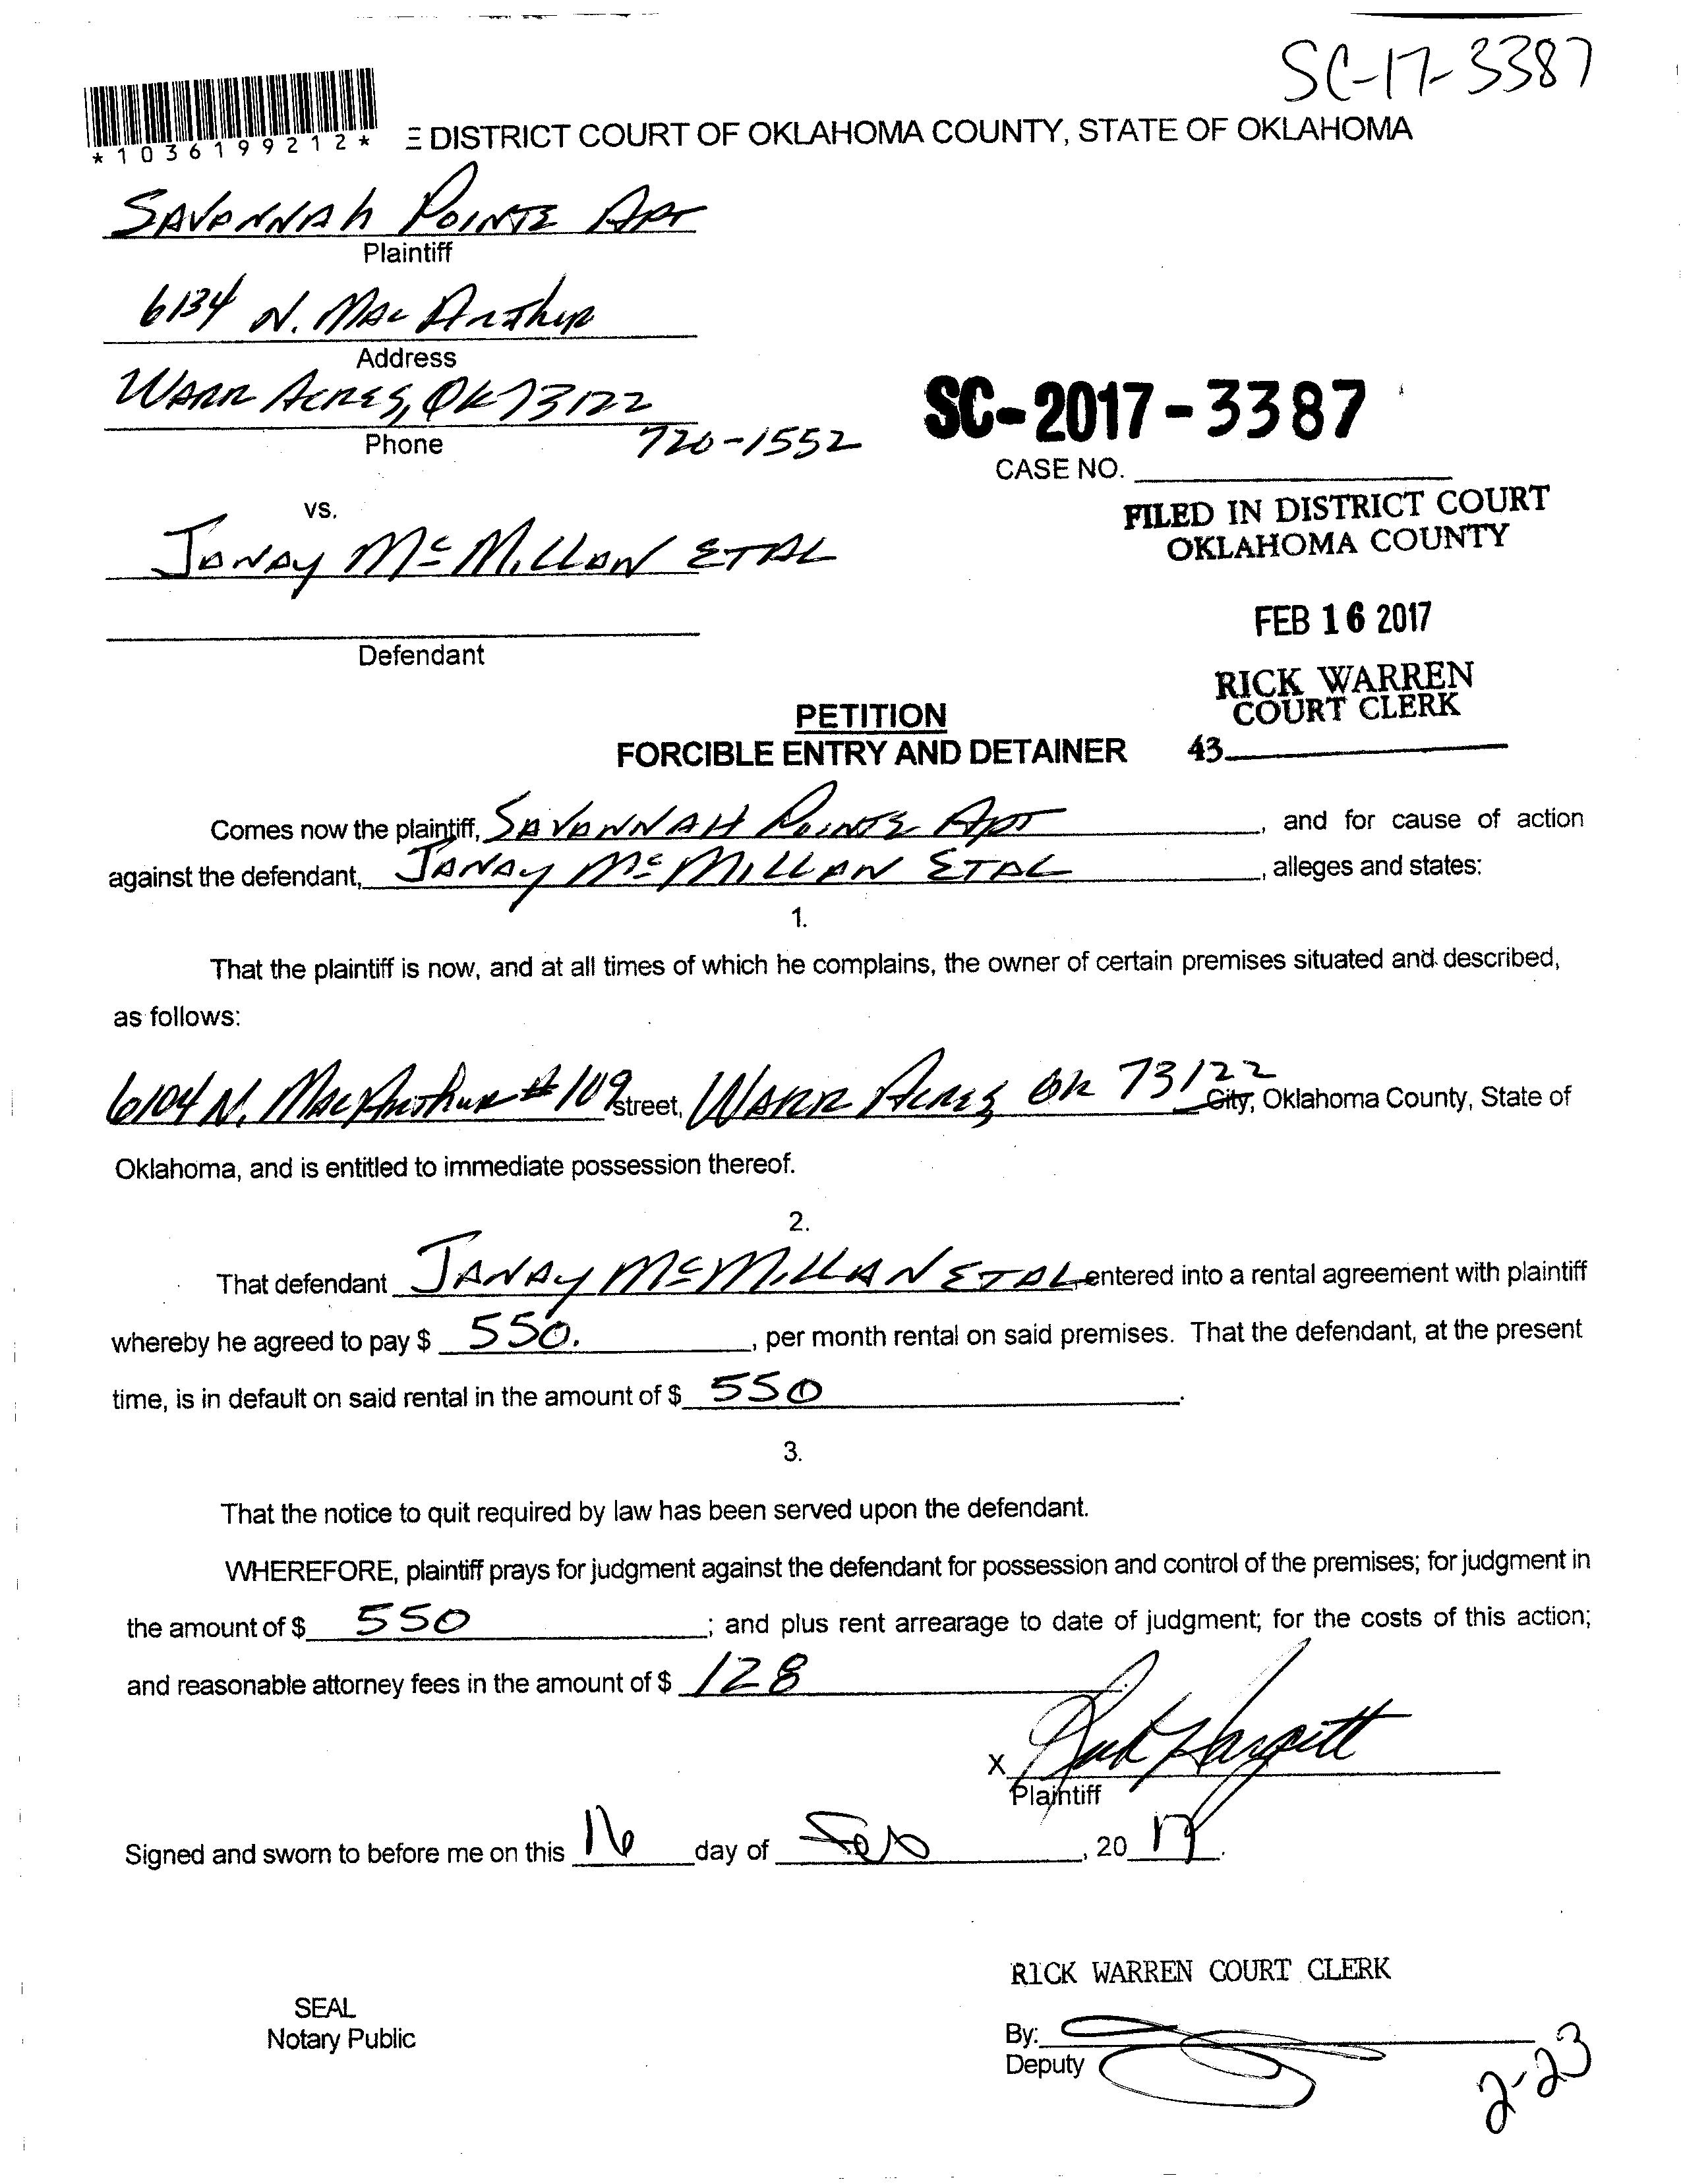 SC-17-3387
*1036199212*
E DISTRICT COURT OF OKLAHOMA COUNTY, STATE OF OKLAHOMA
SAVANNAH POINTE APT
Plaintiff
6134 N. MacArthur
Address
WARR ACRES, OK 73122
Phone 720-1552
SC-2017-3387
CASE NO.
vs.
FILED IN DISTRICT COURT
OKLAHOMA COUNTY
JANAY McMILLAN ETAL
FEB 16 2017
Defendant
RICK WARREN
COURT CLERK
43
PETITION
FORCIBLE ENTRY AND DETAINER
Comes now the plaintiff, SAVANNAH POINTE APT, and for cause of action
against the defendant, JANAY McMILLAN ETAL, alleges and states:
1.
That the plaintiff is now, and at all times of which he complains, the owner of certain premises situated and described,
as follows:
6104 N. MacArthur #109 street, WARR ACRES OK 73122 City, Oklahoma County, State of
Oklahoma, and is entitled to immediate possession thereof.
2.
That defendant JANAY McMILLAN ETAL entered into a rental agreement with plaintiff
whereby he agreed to pay $ 550., per month rental on said premises. That the defendant, at the present
time, is in default on said rental in the amount of $ 550.
3.
That the notice to quit required by law has been served upon the defendant.
WHEREFORE, plaintiff prays for judgment against the defendant for possession and control of the premises; for judgment in
the amount of $ 550; and plus rent arrearage to date of judgment; for the costs of this action;
and reasonable attorney fees in the amount of $ 128.
X
Plaintiff
Signed and sworn to before me on this 16 day of Feb, 2017.
RICK WARREN COURT CLERK
SEAL
Notary Public
By:
Deputy
2-23